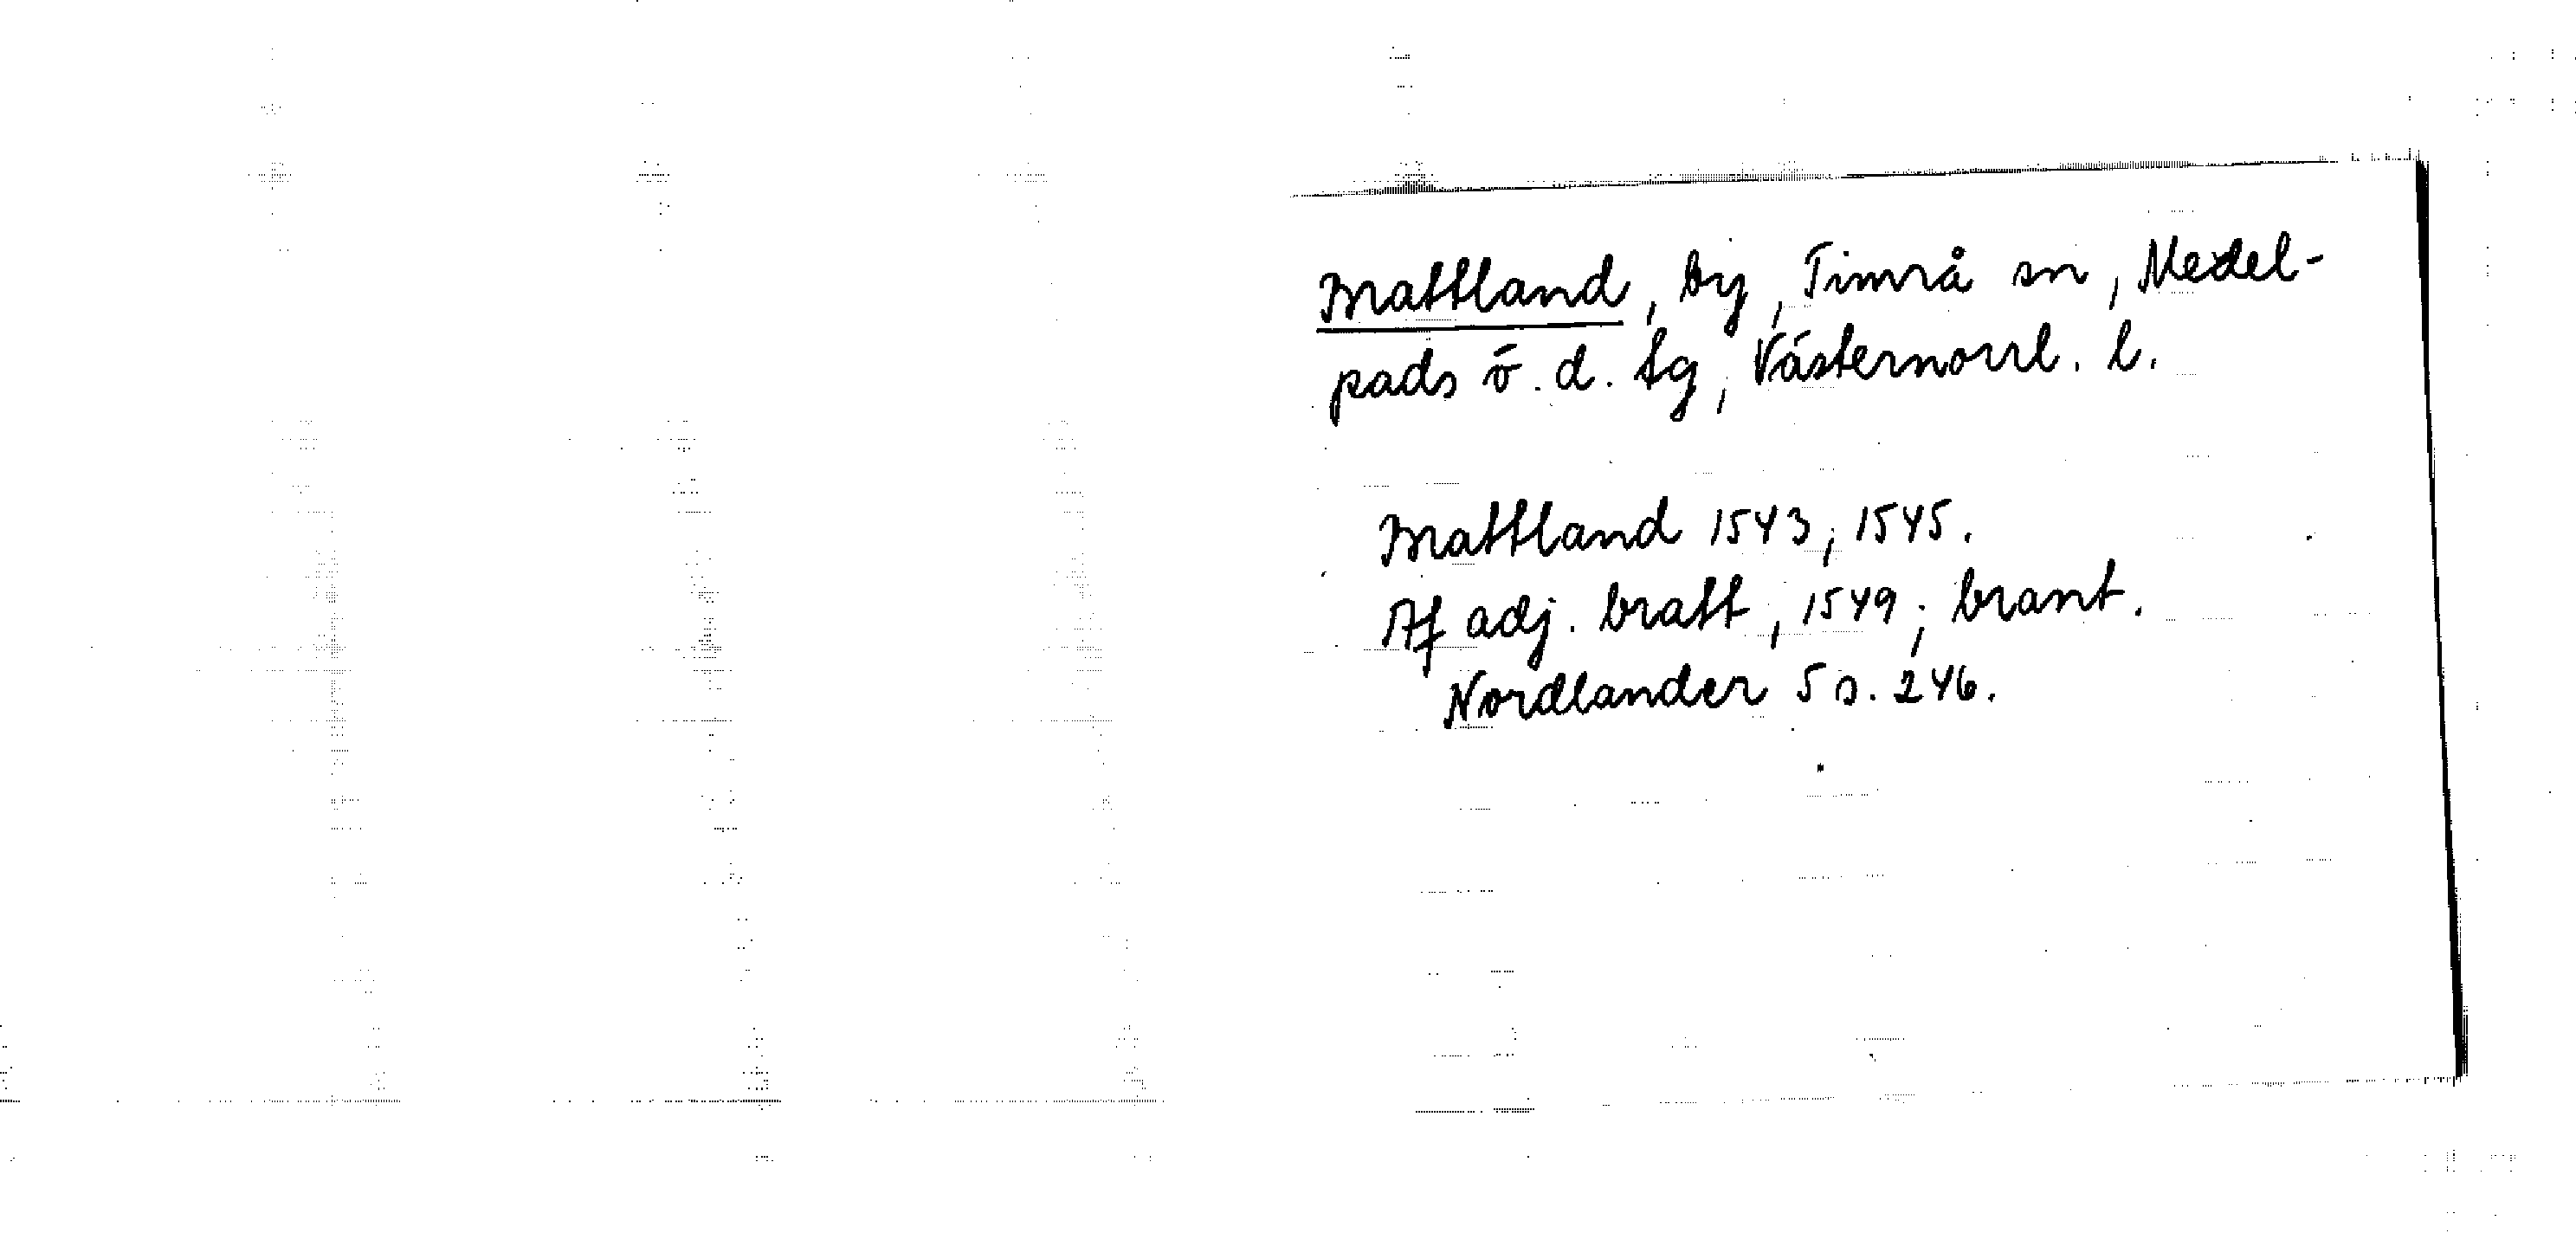 Mattland, by, Timrå sn, Medel-
pads ö. d. tg, Västernorrl. l.
Mattland 1543, 1545.
Af adj. bratt, 1549, brant.
Nordlander 5 s. 246.